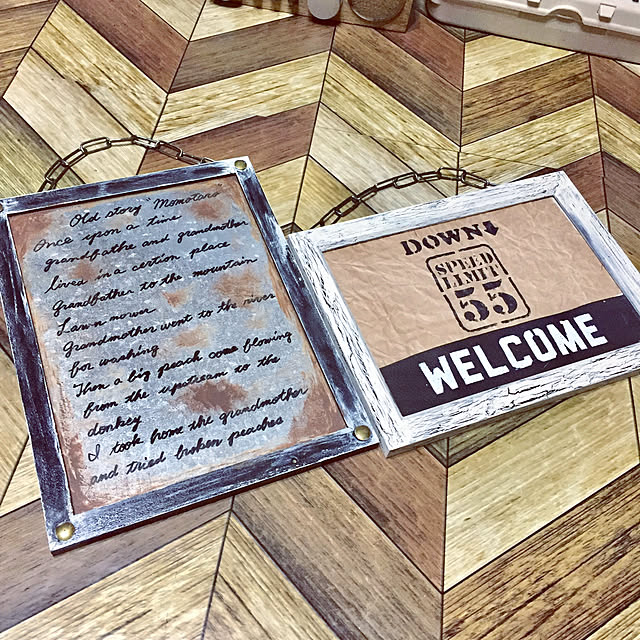 Old story "Momotaro"
Once upon a time
grandfathe and grandmother
lived in a certion place
Grandfather to the mountain
Lawn mower
Grandmother went to the river
for washing
Then a big peach come flowing
from the upstream to the
donkey
I took home the grandmother
and tried broken peaches
DOWN
SPEED
LIMIT
55
WELCOME